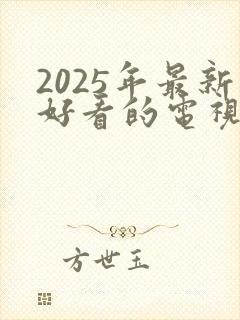 2025年最新
好看的電視
方世玉